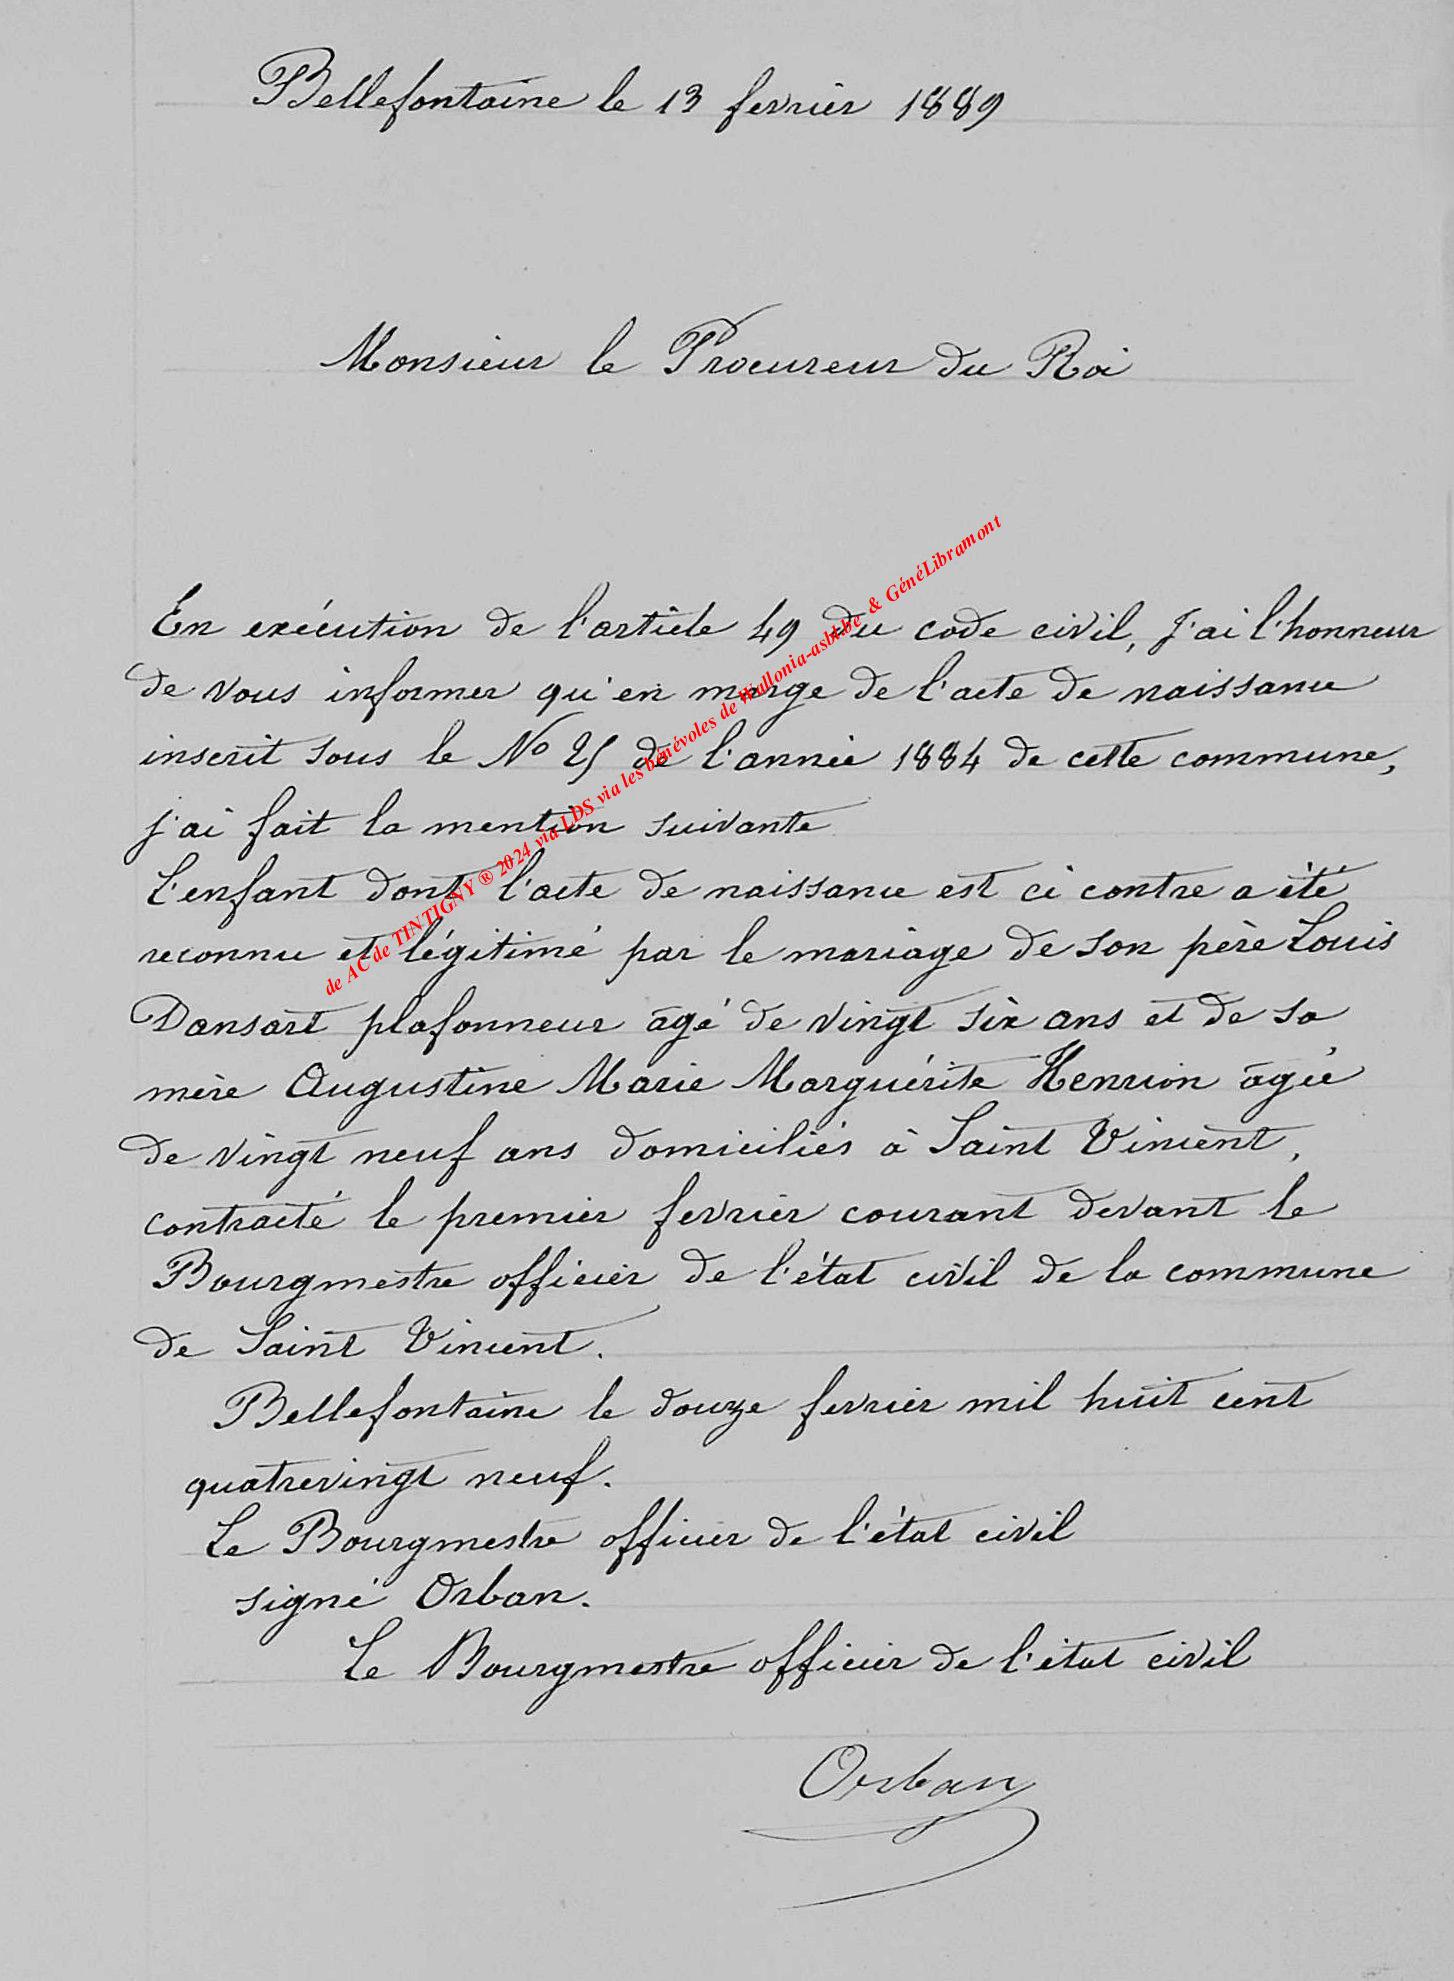 Bellefontaine le 13 fevrier 1889
Monsieur le Procureur du Roi
En exécution de l'article 49 du code civil, j'ai l'honneur
de vous informer qu'en marge de l'acte de naissance
inscrit sous le No 25 de l'année 1884 de cette commune,
j'ai fait la mention suivante
L'enfant dont l'acte de naissance est ci contre a été
reconnu et légitimé par le mariage de son père Louis
Dansart plafonneur âgé de vingt six ans et de sa
mère Augustine Marie Marguérite Henrion âgée
de vingt neuf ans domiciliés à Saint Vincent,
contracté le premier fevrier courant devant le
Bourgmestre officier de l'état civil de la commune
de Saint Vincent.
Bellefontaine le douze fevrier mil huit cent
quatrevingt neuf.
Le Bourgmestre officier de l'état civil
signé Orban.
Le Bourgmestre officier de l'état civil
Orban
de AC de TINTIGNY ® 2024 via LDS via les bénévoles de Wallonia-asbl.be & GénéLibramont